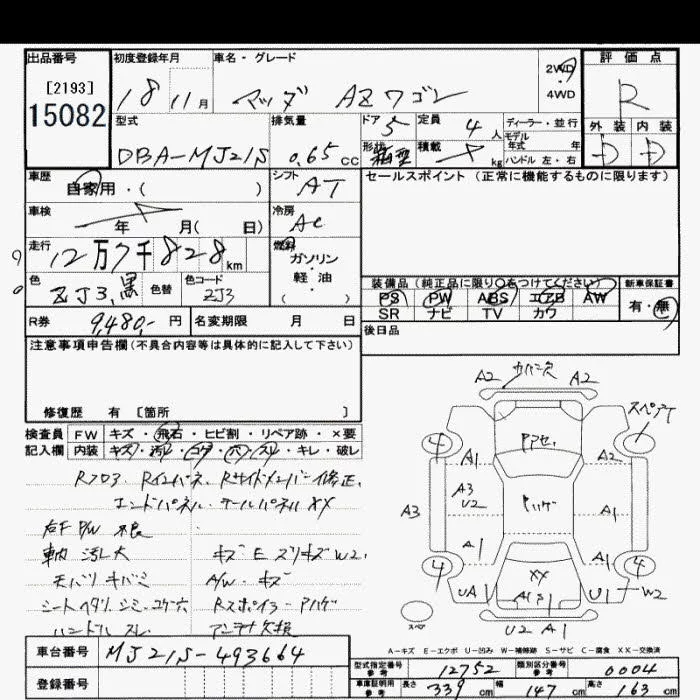 出品番号
[2193]
15082
初度登録年月
18 11月
車名・グレード
マツダ AZワゴン
2WD
4WD
評価点
R
外装 内装
D D
型式
DBA-MJ21S
排気量
0.65 CC
ドア 5
形状 箱型
定員 4 人
積載 kg
ディーラー・並行
モデル
年式 年
ハンドル 左・右
車歴
自家用・( )
シフト
AT
セールスポイント (正常に機能するものに限ります)
車検
年 月( 日)
冷房
AC
走行
12万7千828km
燃料
ガソリン
・
軽・油
( )
色
ZJ3,黒
色替
色コード
ZJ3
装備品 (純正品に限り○をつけてください)
PS PW ABS エアB AW
SR ナビ TV カワ
新車保証書
有・無
R券
9,480.- 円
名変期限 月 日
後日品
注意事項申告欄(不具合内容等は具体的に記入して下さい)
修復歴 有 [箇所 ]
検査員
記入欄
FW キズ・飛石・ヒビ割・リペア跡・×要
内装 キズ・汚れ・コゲ・穴・スレ・キレ・破レ
Rフロア. Rインパネ. Rサイドメンバー修正.
エンドパネル. テールパネル XX
右F P/W 不良
車内 汚レ大
キズ E スリキズ W2,
天バリ キバミ
A/W・キズ
シートヘタリ シミ.コゲ穴
Rスポイラー・アハゲ
ハンドル スレ
アンテナ欠損
A2 カバー欠 A2
スペアT
4
A1
アアセ.
A2
A3
A3
U2
アハゲ
A1
A1
A1
4
XX
4
UA1
U1
W2
U2 A1
スペア
A-キズ E-エクボ U-凹み W-補修跡 S-サビ C-腐食 XX-交換済
車台番号
MJ21S-493664
登録番号
型式指定番号
参考
12752
類別区分番号
参考
0004
車庫証明用
参考
長さ 339 cm 幅 147 cm 高さ 163 cm